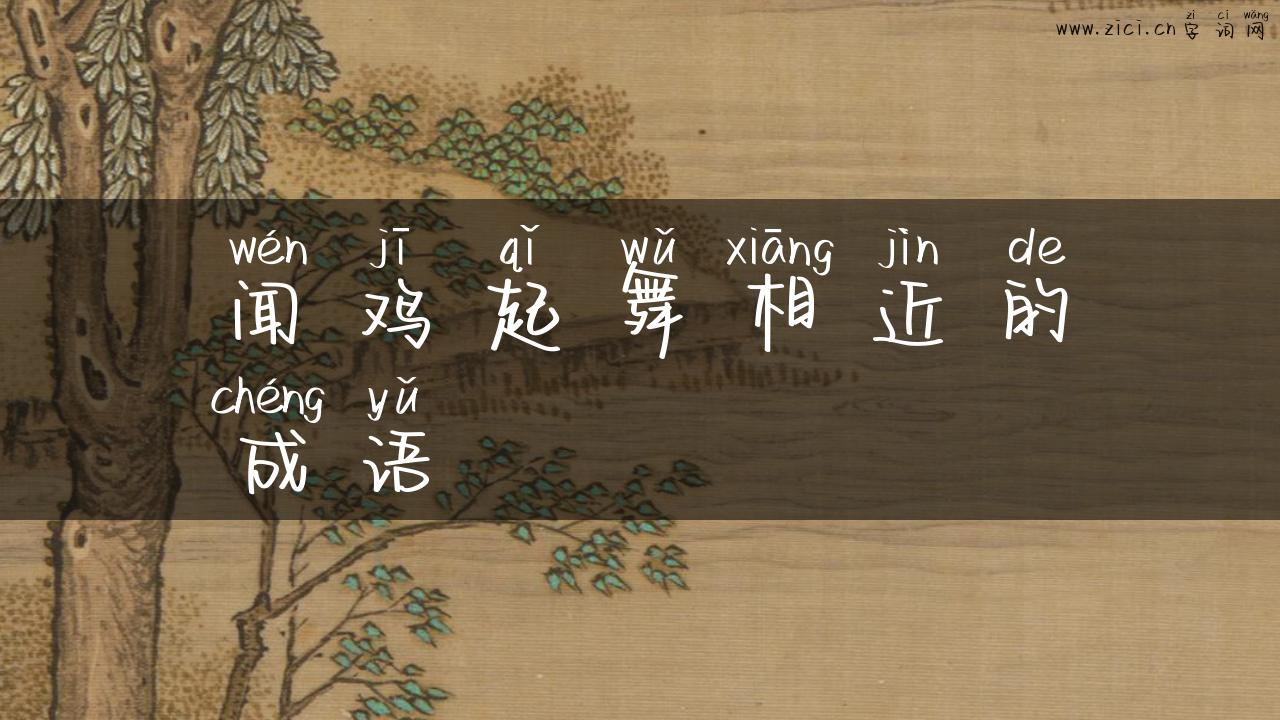 zì cí wǎng
www.zici.cn 字词网
wén jī qǐ wǔ xiāng jìn de
闻鸡起舞相近的
chéng yǔ
成语